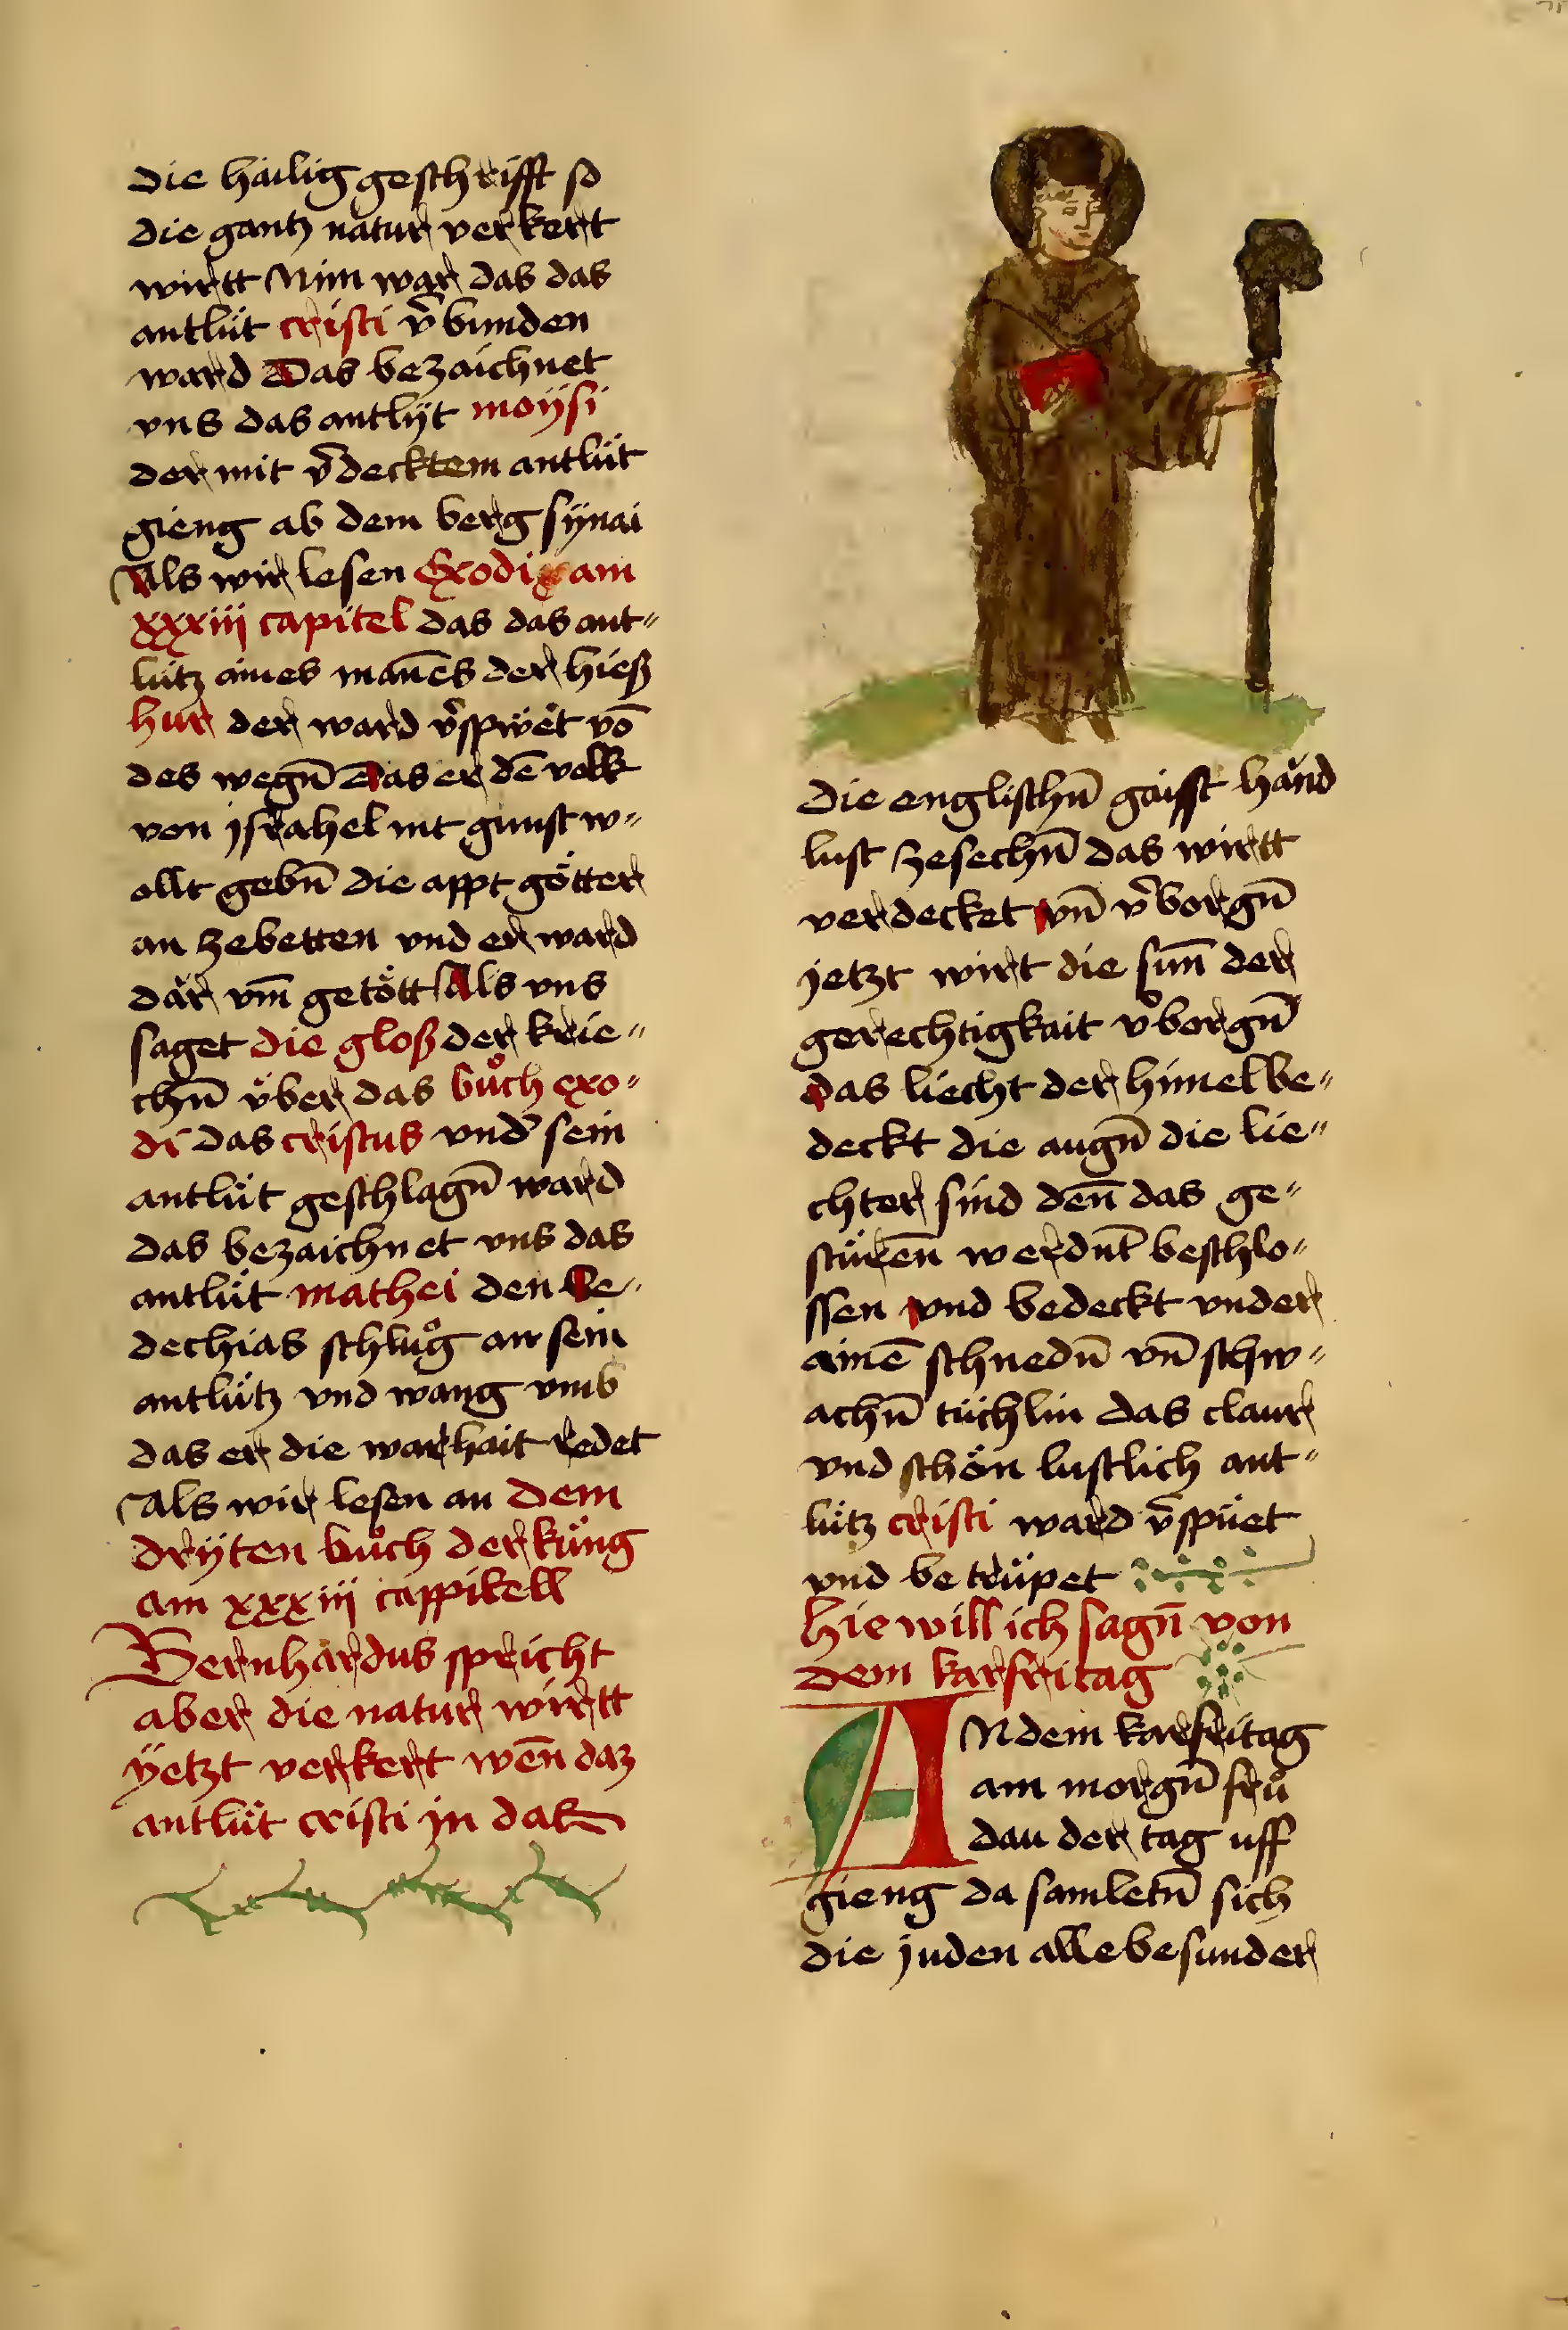 die hailig geschrifft so
die gantz natur verkert
wirtt Nim war das das
antlüt cristi v̄bunden
ward Das bezaichnet
vns das antlÿt moÿsi
der mit v̄decktem antlüt
gieng ab dem berg sÿnai
Als wir lesen Exodi am
xxxiij capitel das das ant〃
lütz aines man̄es der hieß
hur der ward v̄spiwet vō
des wegn̄ Das er dē volk
von jsrahel nit gunst w〃
ollt gebn̄ die appt götter
an zebetten vnd er ward
dar vm̄ getött Als vns
saget die gloß der krie〃
chn̄ v̈ber das bůch exo〃
di das cristus vnd' sein
antlüt geschlagn̄ ward
das bezaichnet vns das
antlüt mathei den Se〃
dechias schlůg an sein
antlütz vnd wang vmb
das er die warhait redet
Als wir lesen an dem
drÿten bůch der küng
am xxxiij cappitell
Bernhardus spricht
aber die natur wirtt
ÿetzt verkert wen̄ daz
antlüt cristi jn dak
die englischn̄ gaisst hånd
lust zesechn̄ das wirtt
verdecket vn̄ v̄borgn̄
jetzt wirt die sun̄ der
gerechtigkait v̄borgn̄
das liecht der himel be〃
deckt die augn̄ die lie〃
chter sind den̄ das ge〃
stüren̄ werdnt beschlo〃
ssen vnd bedeckt vnder
ainē schnedn̄ vn̄ schw〃
achn̄ tüchlin das claur
vnd schön lustlich ant〃
lütz cristi ward v̄spüet
vnd betrüpet
hie will ich sagn̄ von
dem karfritag
AN dem karfritag
am morgn̄ frů
dau der tag uff
gieng da samletn̄ sich
die juden alle besunder